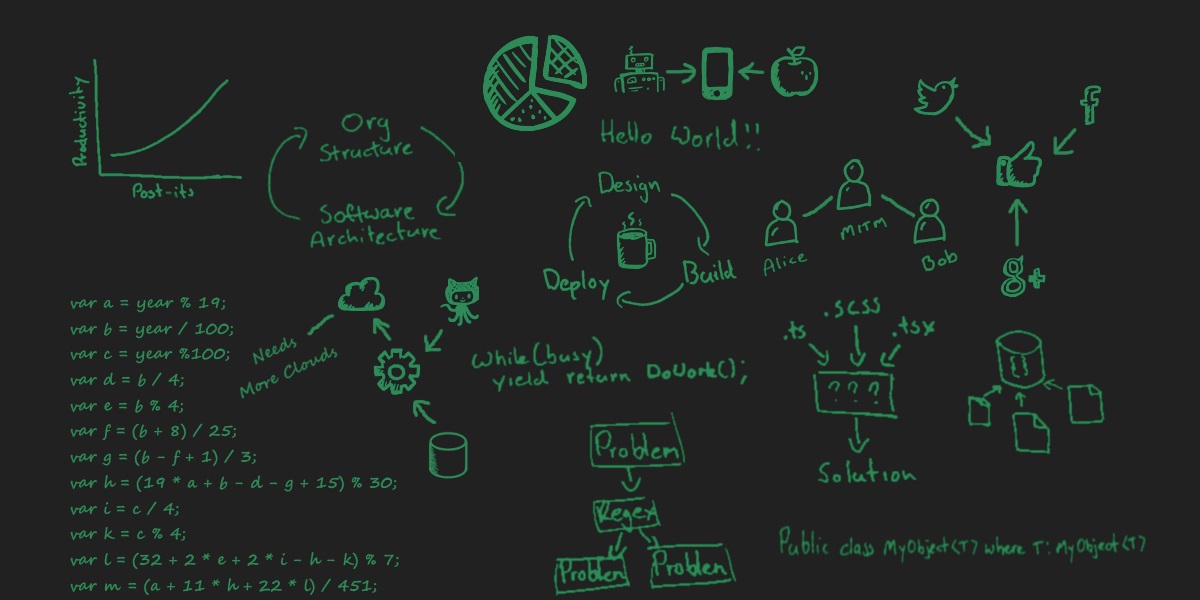 Productivity
Post-its
Org
Structure
Software
Architecture
Hello World!!
Design
Build
Deploy
Alice
MITM
Bob
g+
var a = year % 19;
var b = year / 100;
var c = year %100;
var d = b / 4;
var e = b % 4;
var f = (b + 8) / 25;
var g = (b - f + 1) / 3;
var h = (19 * a + b - d - g + 15) % 30;
var i = c / 4;
var k = c % 4;
var l = (32 + 2 * e + 2 * i - h - k) % 7;
var m = (a + 11 * h + 22 * l) / 451;
Needs
More Clouds
While(busy)
yield return DoWork();
.ts
.scss
.tsx
???
Solution
{}
Problem
Regex
Problem
Problem
Public class MyObject<T> where T: MyObject<T>